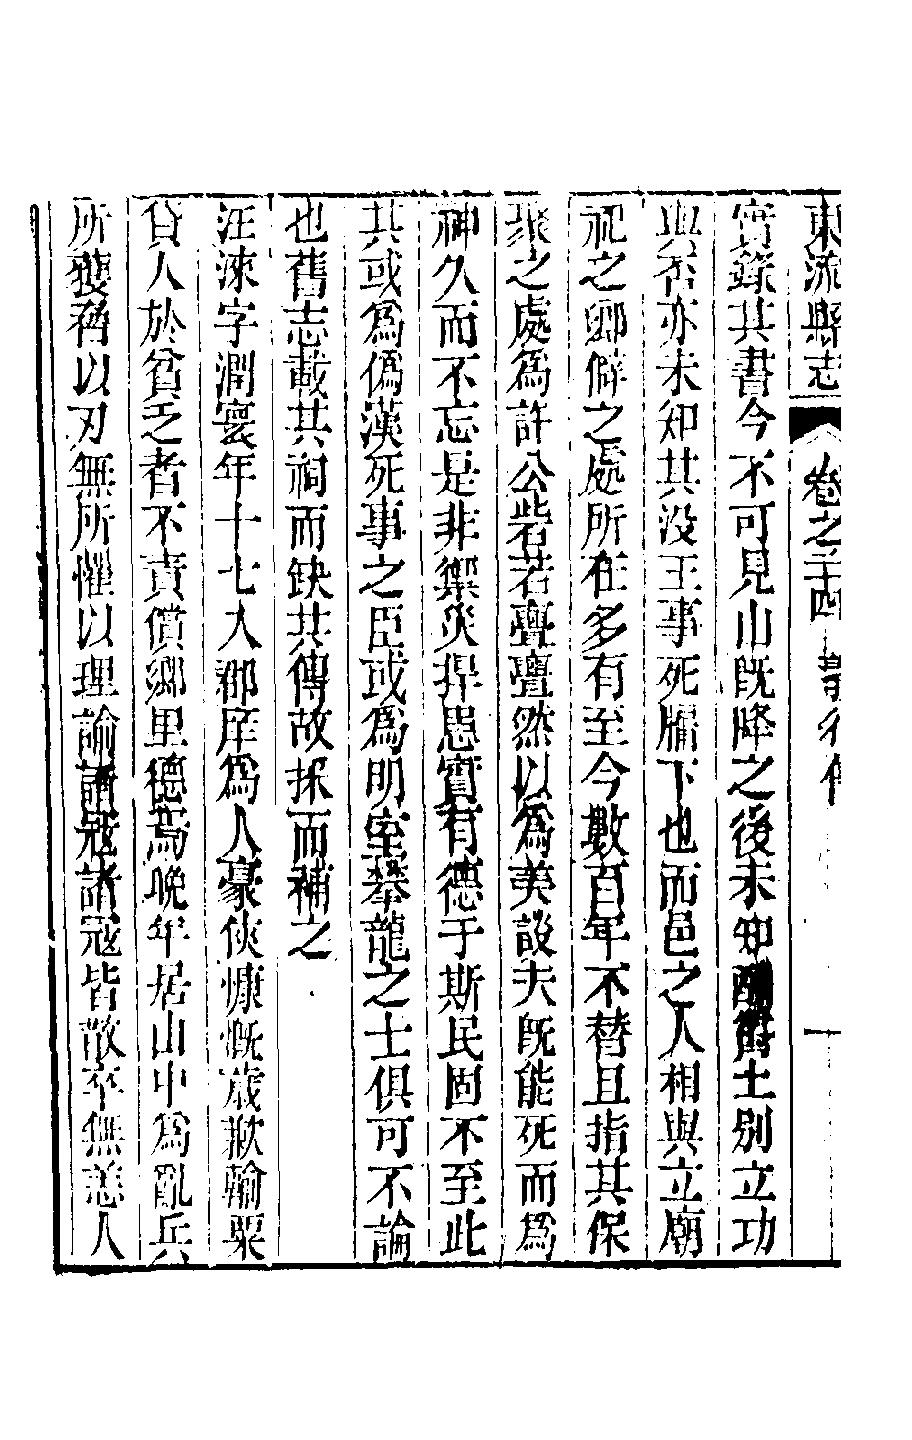 東流縣志 卷之十四 義行傳
實錄其書今不可見山既降之後未知酬舊土別立功
與否亦未知其没王事死牖下也而邑之人相與立廟
祀之鄉僻之處所在多有至今數百年不替且指其保
聚之處為許公砦若亹亹然以為美談夫既能死而為
神久而不忘是非禦災捍患實有德于斯民固不至此
其或為偽漢死事之臣或為明室攀龍之士俱可不論
也舊志載其祠而缺其傳故採而補之
汪涑字潤寰年十七入郡庠為人豪俠慷慨歲歉輸粟
貸人於貧乏者不責償鄉里德焉晚年居山中為亂兵
所獲脅以刃無所懼以理諭諸寇諸寇皆散卒無恙人